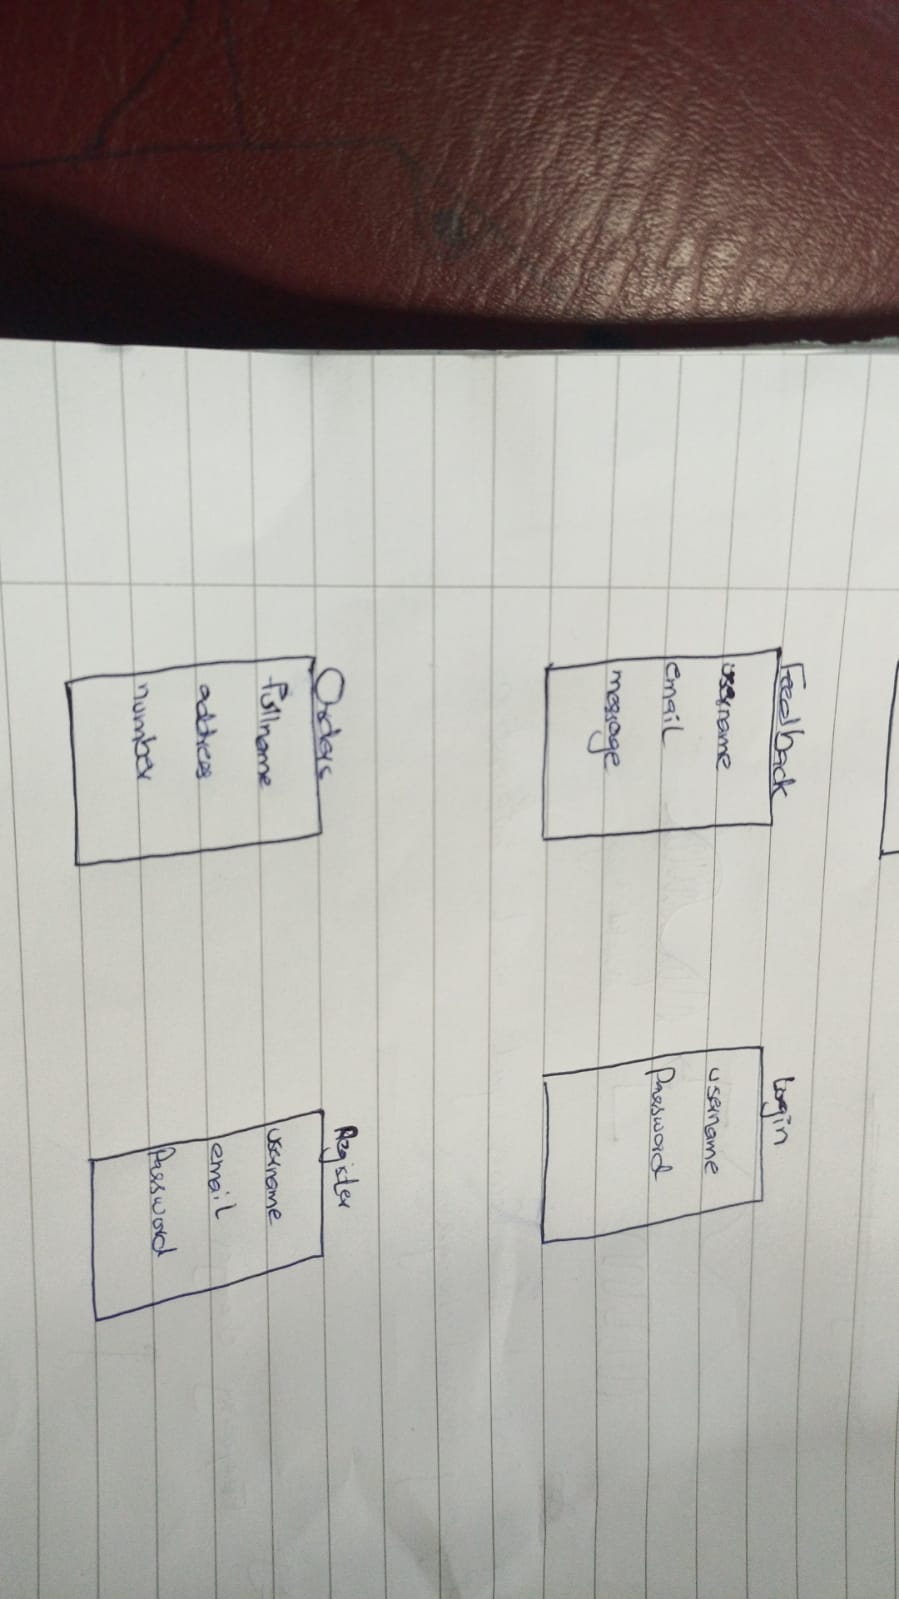 Feedback
username
email
message
Login
username
Password
Orders
fullname
address
number
Register
username
email
Password